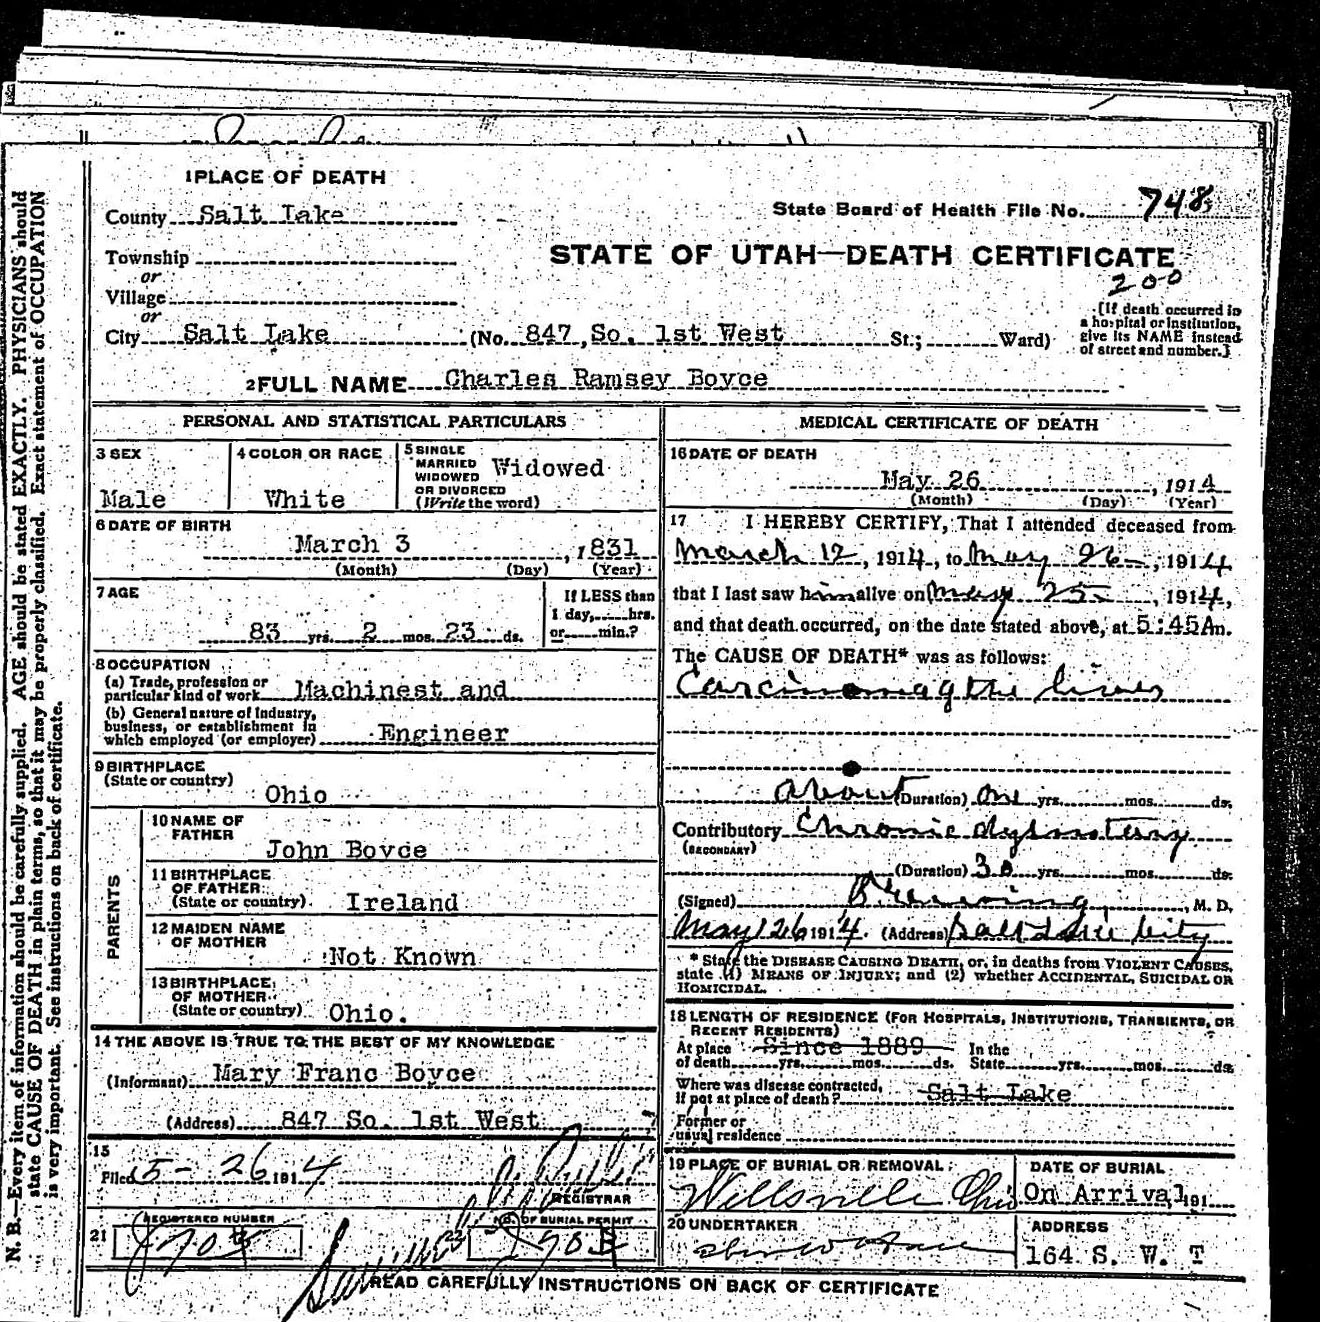 1 PLACE OF DEATH
County Salt Lake
State Board of Health File No. 748
STATE OF UTAH—DEATH CERTIFICATE
200
Township
or
Village
or
City Salt Lake (No. 847, So. 1st West St.; Ward)
[If death occurred in
a hospital or institution,
give its NAME instead
of street and number.]
2 FULL NAME Charles Ramsey Boyce
PERSONAL AND STATISTICAL PARTICULARS
3 SEX
Male
4 COLOR OR RACE
White
5 SINGLE
MARRIED
WIDOWED
OR DIVORCED
(Write the word)
Widowed
6 DATE OF BIRTH
March 3, 1831
(Month) (Day) (Year)
7 AGE
83 yrs. 2 mos. 23 ds.
If LESS than
1 day, hrs.
or min.?
8 OCCUPATION
(a) Trade, profession or
particular kind of work Machinest and
(b) General nature of industry,
business, or establishment in
which employed (or employer) Engineer
9 BIRTHPLACE
(State or country)
Ohio
PARENTS
10 NAME OF
FATHER
John Boyce
11 BIRTHPLACE
OF FATHER
(State or country). Ireland
12 MAIDEN NAME
OF MOTHER
Not Known
13 BIRTHPLACE
OF MOTHER
(State or country) Ohio.
14 THE ABOVE IS TRUE TO THE BEST OF MY KNOWLEDGE
(Informant) Mary Franc Boyce
(Address) 847 So. 1st West
15
Filed 5-26 1914
REGISTRAR
21 REGISTERED NUMBER
22 NO. OF BURIAL PERMIT
MEDICAL CERTIFICATE OF DEATH
16 DATE OF DEATH
May 26, 1914
(Month) (Day) (Year)
17 I HEREBY CERTIFY, That I attended deceased from
March 12, 1914, to May 26, 1914
that I last saw him alive on May 25, 1914,
and that death occurred, on the date stated above, at 5:45 A m.
The CAUSE OF DEATH* was as follows:
Carcinoma of the liver
About (Duration) one yrs. mos. ds.
Contributory Chronic dysentery
(SECONDARY)
(Duration) 30 yrs. mos. ds.
(Signed) M. D.
May 26 1914. (Address) Salt Lake City
* State the DISEASE CAUSING DEATH, or, in deaths from VIOLENT CAUSES,
state (1) MEANS OF INJURY; and (2) whether ACCIDENTAL, SUICIDAL OR
HOMICIDAL.
18 LENGTH OF RESIDENCE (FOR HOSPITALS, INSTITUTIONS, TRANSIENTS, OR
RECENT RESIDENTS)
At place Since 1889 In the
of death yrs. mos. ds. State yrs. mos. ds.
Where was disease contracted,
if not at place of death? Salt Lake
Former or
usual residence
19 PLACE OF BURIAL OR REMOVAL
Wellsville Ohio
DATE OF BURIAL
On Arrival, 191
20 UNDERTAKER
ADDRESS
164 S. W. T
READ CAREFULLY INSTRUCTIONS ON BACK OF CERTIFICATE
N. B.—Every item of information should be carefully supplied. AGE should be stated EXACTLY. PHYSICIANS should
state CAUSE OF DEATH in plain terms, so that it may be properly classified. Exact statement of OCCUPATION
is very important. See instructions on back of certificate.